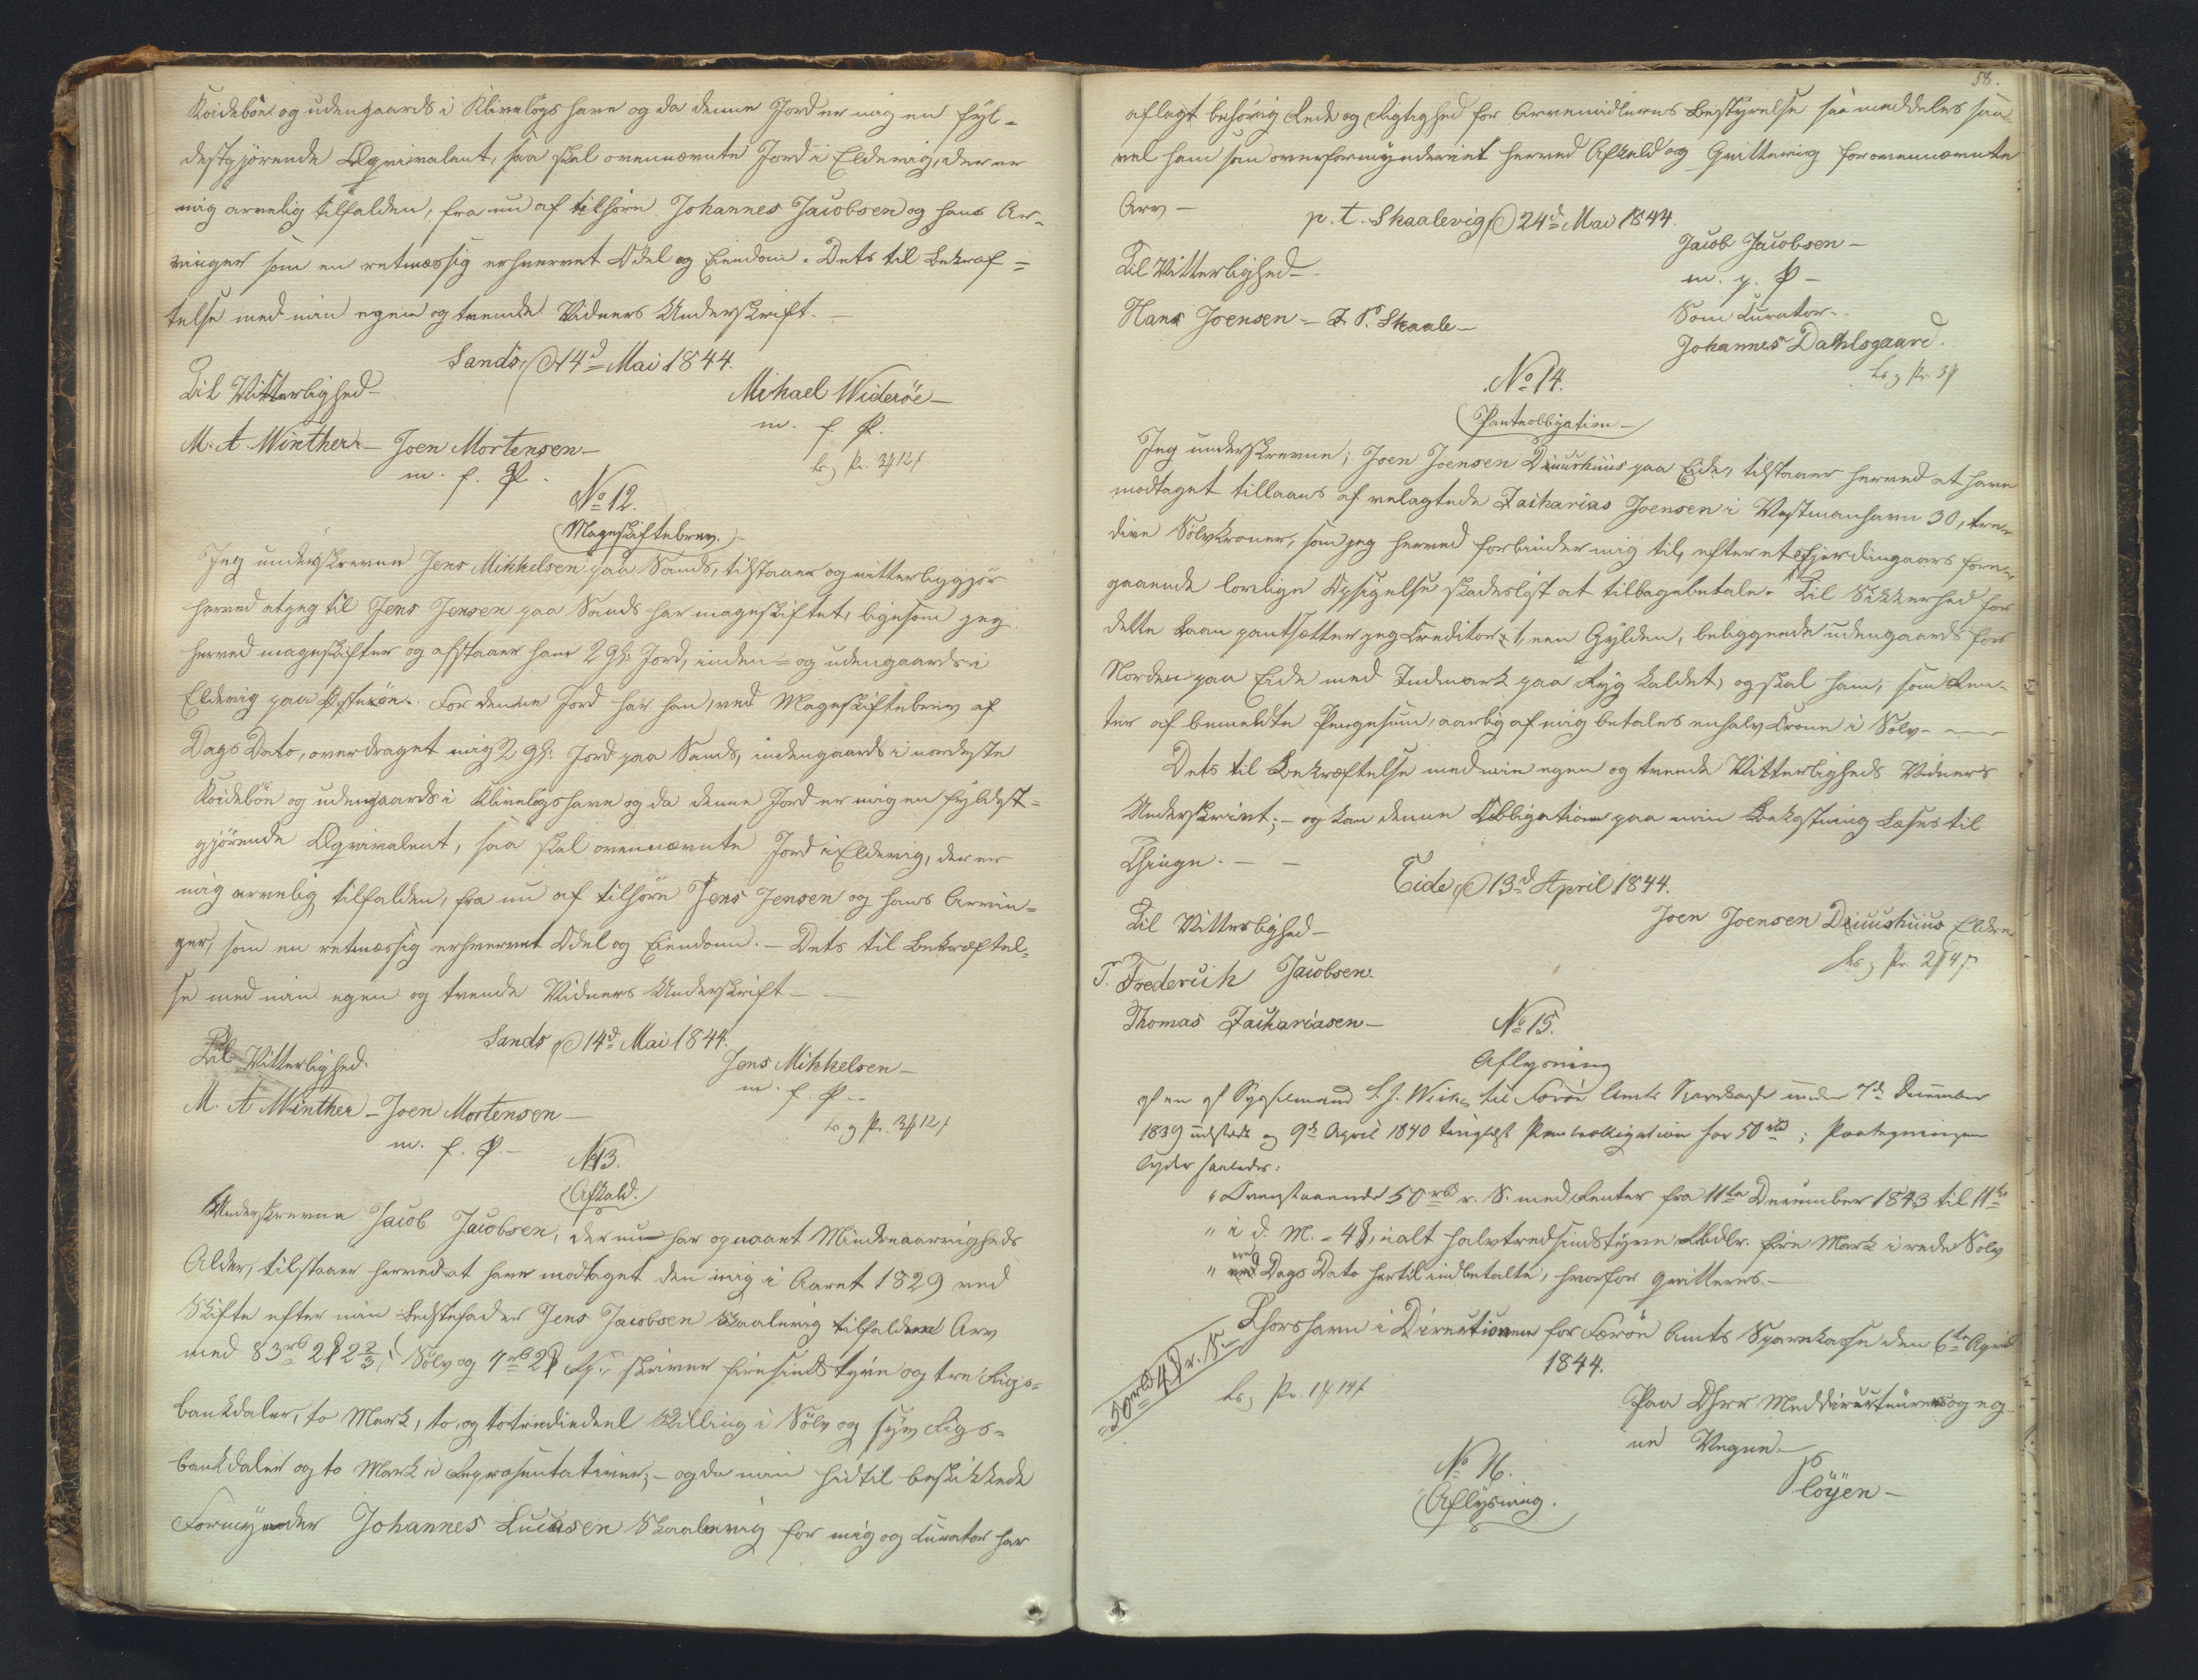 Koidebön og udengaards i Klivelögshave og da denne Jord er mig en fyl-
destgjörende Æqvivalent, saa skal ovennævnte Jord i Eldevig, der er
mig arvelig tilfalden, fra nu af tilhöre Johannes Jacobsen og hans Ar-
vinger som en retmæssig erhvervet Odel og Eiendom. Dets til Bekræf=
telse med min egen og tvende Vidners Underskrift. —
Sands, D 14d Mai 1844.
Til Vitterlighed —
Mikael Wideröe —
m. f. P.
M. A. Winther — Joen Mortensen —
m. f. P.
No 12.
Mageskiftebrev.
Jeg underskrevne Jens Mikkelsen paa Sands, tilstaaer og vitterliggjör
herved at jeg til Jens Jensen paa Sands har mageskiftet, ligesom jeg
herved mageskifter og afstaaer ham 2 gl: Jord, inden= og udengaards i
Eldevig paa Österöe. For denne Jord har han, ved Mageskiftebrev af
Dags Dato, overdraget mig 2 gl: Jord paa Sands, indengaards i nordeste
Koidebön og udengaards i Klivelögshave og da denne Jord er mig en fyldest=
gjörende Æqvivalent, saa skal ovennævnte Jord i Eldevig, der er
mig arvelig tilfalden, fra nu af tilhöre Jens Jensen og hans Arvin=
ger, som en retmæssig erhvervet Odel og Eiendom. — Dets til Bekræftel=
se med min egen og tvende Vidners Underskrift —
Sands D 14d Mai 1844.
Til Vitterlighed.
Jens Mikkelsen —
m. f. P. —
M. A Winther — Joen Mortensen —
m. f. P. —
No 13.
Afkald.
Underskrevne Jacob Jacobsen, der nu har opnaaet Mindreaarigheds
Alder, tilstaaer herved at have modtaget den mig i Aaret 1829 ved
Skifte efter min Bedstefader Jens Jacobsen Skaalevig tilfaldne Arv
med 83 rb 2 2 2/3 Sölv og 7 rb 2 skriver firesindstyve og tre Rigs=
bankdaler, to Mark, to og totrediedeel Skilling i Sölv og syv Rigs=
bankdaler og to Mark i Repræsentativer; — og da min hidtil beskikkede
Formynder Johannes Lucasen Skaalevig for mig og Curator har
58.
aflagt behörig Rede og Rigtighed for Arvemidlernes Bestyrelse saa meddeles saa-
vel ham som overformynderiet herved Afkald og Qvittering for ovennævnte
Arv —
p. t. Skaalevig D 24d Mai 1844.
Jacob Jacobsen —
m. p. P —
Til Vitterlighed —
Som Curator —
Hans Joensen — J. P. Skaale —
Johannes Dahlsgaard.
No 14.
Panteobligation —
Jeg underskrevne, Joen Joensen Diuurhuus paa Eide, tilstaaer herved at have
modtaget tillaans af velagtede Zacharias Joensen i Vestmanhavn 30, tre-
dive Sölvkroner, som jeg herved forbinder mig til, efter et Fjerdingaars fore-
gaaende lovlige Opsigelse skadeslöst at tilbagebetale. Til Sikkerhed for
dette Laan pantsætter jeg Creditor 1, een Gylden, beliggende udengaards for
Norden paa Eide med Indmark paa Ryg kaldet, og skal ham, som Ren-
ter af bemeldte Pengesum, aarlig af mig betales enhalv Krone i Sölv. —
Dets til Bekræftelse med min egen og tvende Vitterligheds Vidners
Underskrivt; — og kan denne Obligation paa min Bekostning læses til
Thinge. — —
Eide, D 13d April 1844.
Til Vitterlighed —
Joen Joensen Diuurhuus Eldre
T. Frederich Jacobsen.
Thomas Zachariasen —
No 15.
Aflysning
af en af Sysselmand til Færöe Amts Sparekasse under 7d December
1839 udstædt og 9d April 1840 tinglæst Panteobligation for 50 rbd; Paategningen
lyder saaledes:
" Ovenstaaende 50 rbd r. S. med Renter fra 11te December 1843 til 11te
" i d. M. = 4, ialt halvtredsindstyve Rbdlr. fire Mark i rede Sölv
" ved Dags Dato hertil indbetalte, hvorfor qvitteres —
Thorshavn i Directionen for Færöe Amts Sparekasse den 6te April
1844.
50 rbd 4 r. S.
Paa Dhrr Meddirecteurers og eg-
ne Vegne.
Plöyen —
No 16.
Aflysning.